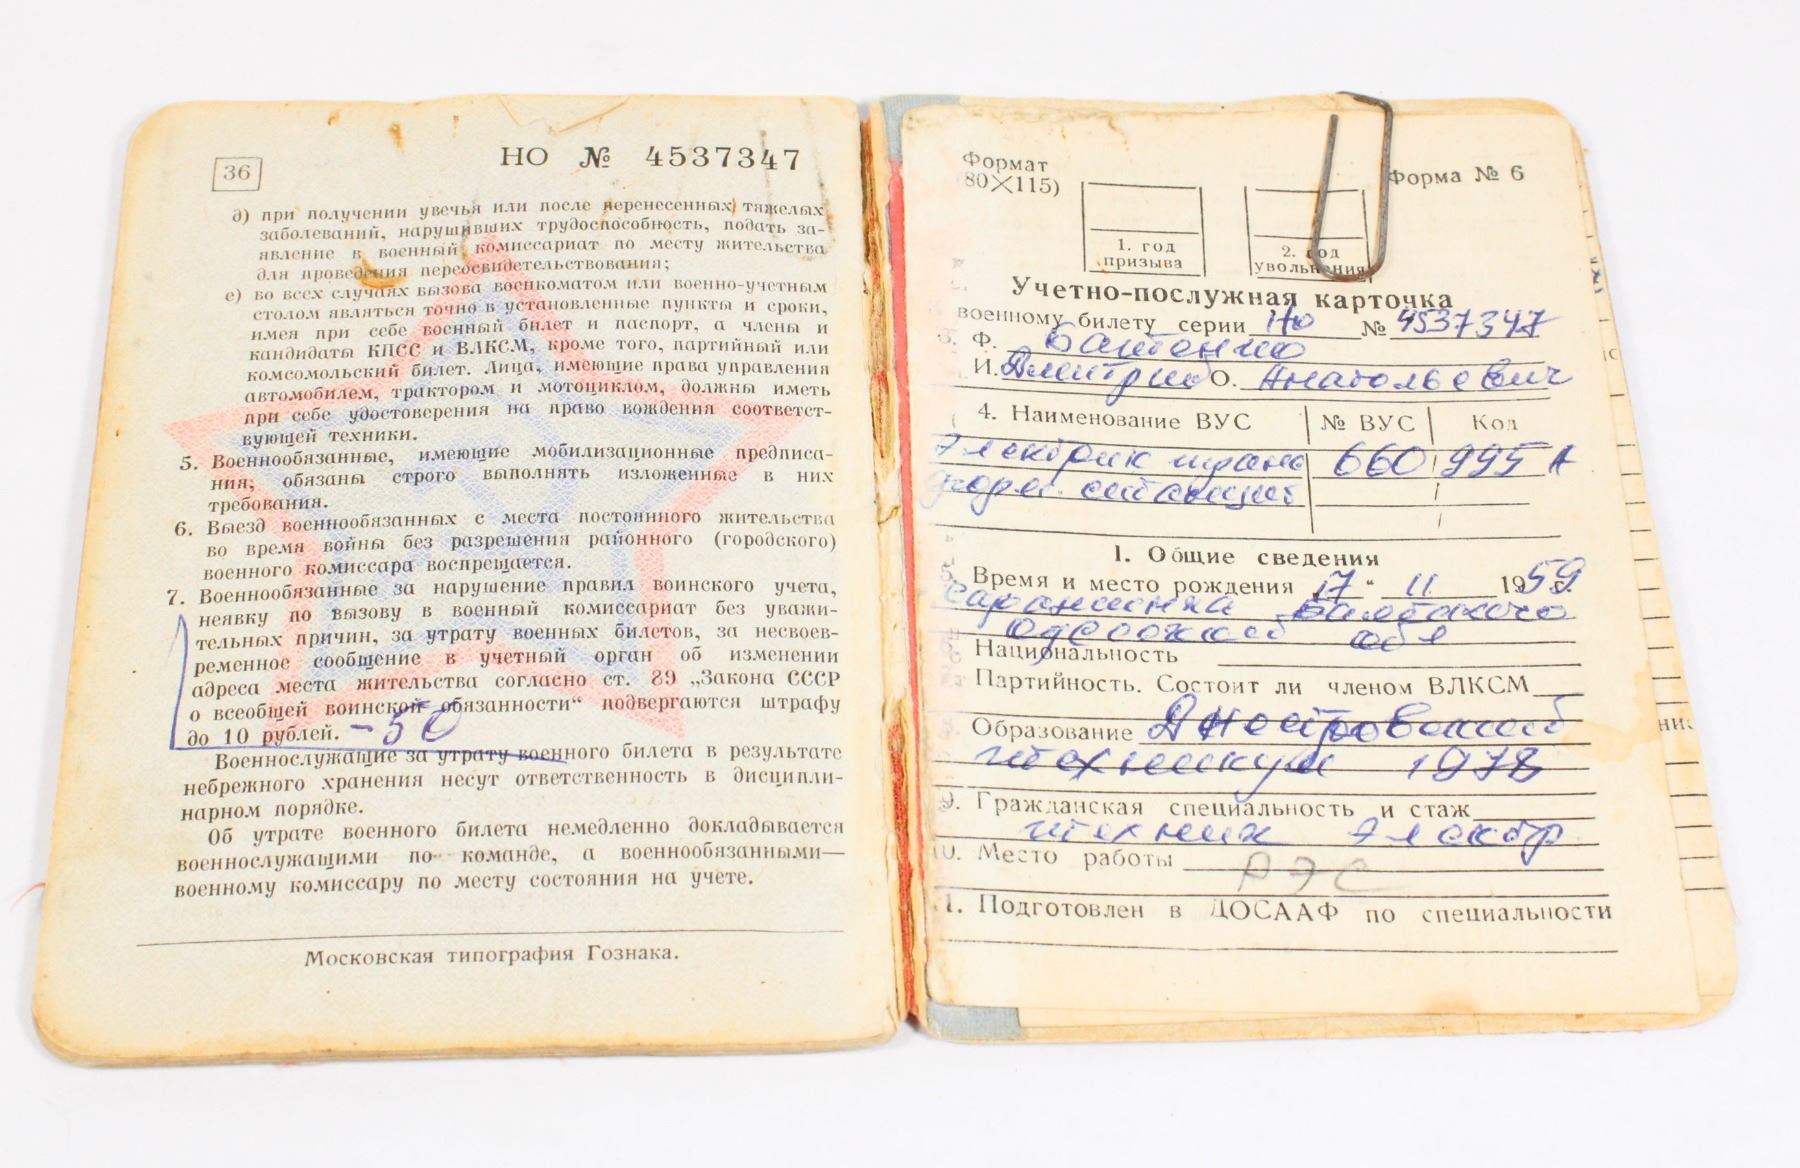 36
НО № 4537347
д) при получении увечья или после перенесенных тяжелых
заболеваний, нарушивших трудоспособность, подать за-
явление в военный комиссариат по месту жительства
для проведения переосвидетельствования;
е) во всех случаях вызова военкоматом или военно-учетным
столом являться точно в установленные пункты и сроки,
имея при себе военный билет и паспорт, а члены и
кандидаты КПСС и ВЛКСМ, кроме того, партийный или
комсомольский билет. Лица, имеющие права управления
автомобилем, трактором и мотоциклом, должны иметь
при себе удостоверения на право вождения соответст-
вующей техники.
5. Военнообязанные, имеющие мобилизационные предписа-
ния, обязаны строго выполнять изложенные в них
требования.
6. Выезд военнообязанных с места постоянного жительства
во время войны без разрешения районного (городского)
военного комиссара воспрещается.
7. Военнообязанные за нарушение правил воинского учета,
неявку по вызову в военный комиссариат без уважи-
тельных причин, за утрату военных билетов, за несвоев-
ременное сообщение в учетный орган об изменении
адреса места жительства согласно ст. 89 „Закона СССР
о всеобщей воинской обязанности“ подвергаются штрафу
до 10 рублей. – 50
Военнослужащие за утрату военного билета в результате
небрежного хранения несут ответственность в дисципли-
нарном порядке.
Об утрате военного билета немедленно докладывается
военнослужащими по команде, а военнообязанными—
военному комиссару по месту состояния на учете.
Московская типография Гознака.
Формат
(80×115)
Форма № 6
1. год
призыва
2. год
увольнения
Учетно-послужная карточка
военному билету серии НО № 4537347
3. Ф.
И. Дмитрий О. Анатольевич
4. Наименование ВУС № ВУС Код
Электрик 660 995 А
1. Общие сведения
Время и место рождения 17 " 11 1959 г.
обл
Национальность
Партийность. Состоит ли членом ВЛКСМ
Образование Днестровский
техникум 1978
9. Гражданская специальность и стаж
техник электр.
10. Место работы РЭС
11. Подготовлен в ДОСААФ по специальности